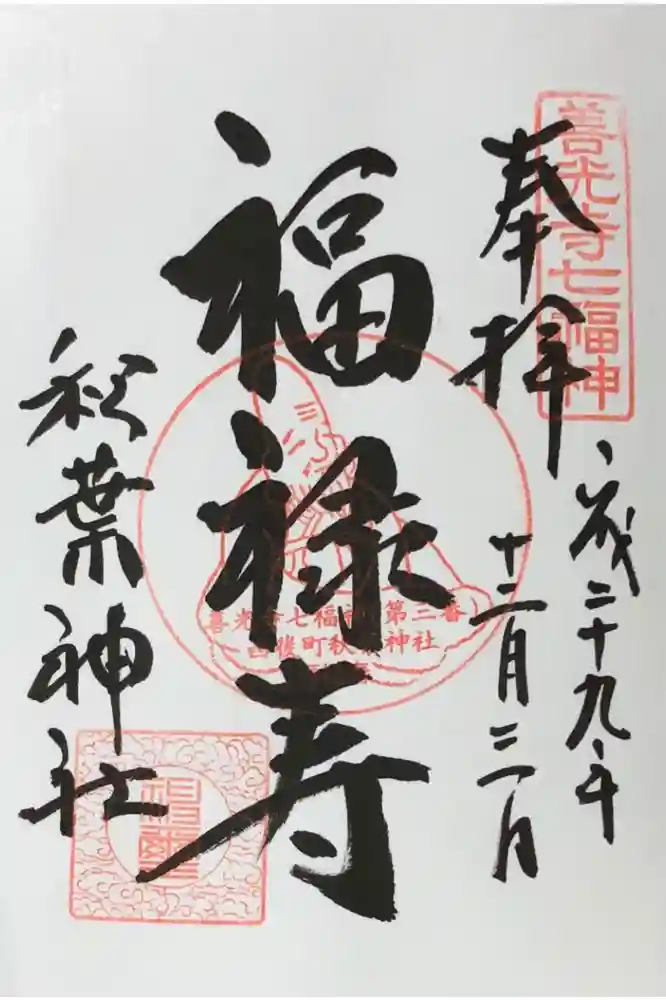 善光寺七福神
奉拝
平成二十九年
十二月三日
福禄寿
善光寺七福神 第三番
西後町秋葉神社
秋葉神社